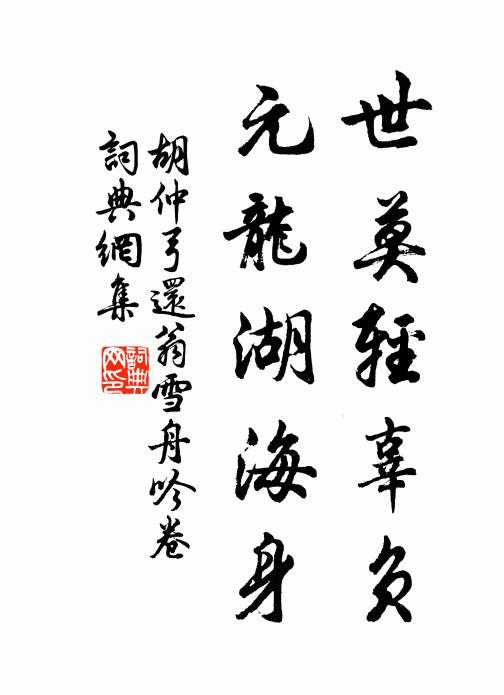 世莫輕辜負
元龍湖海身
胡仲弓還翁雪舟吟卷
詞典網集
詞典
网印